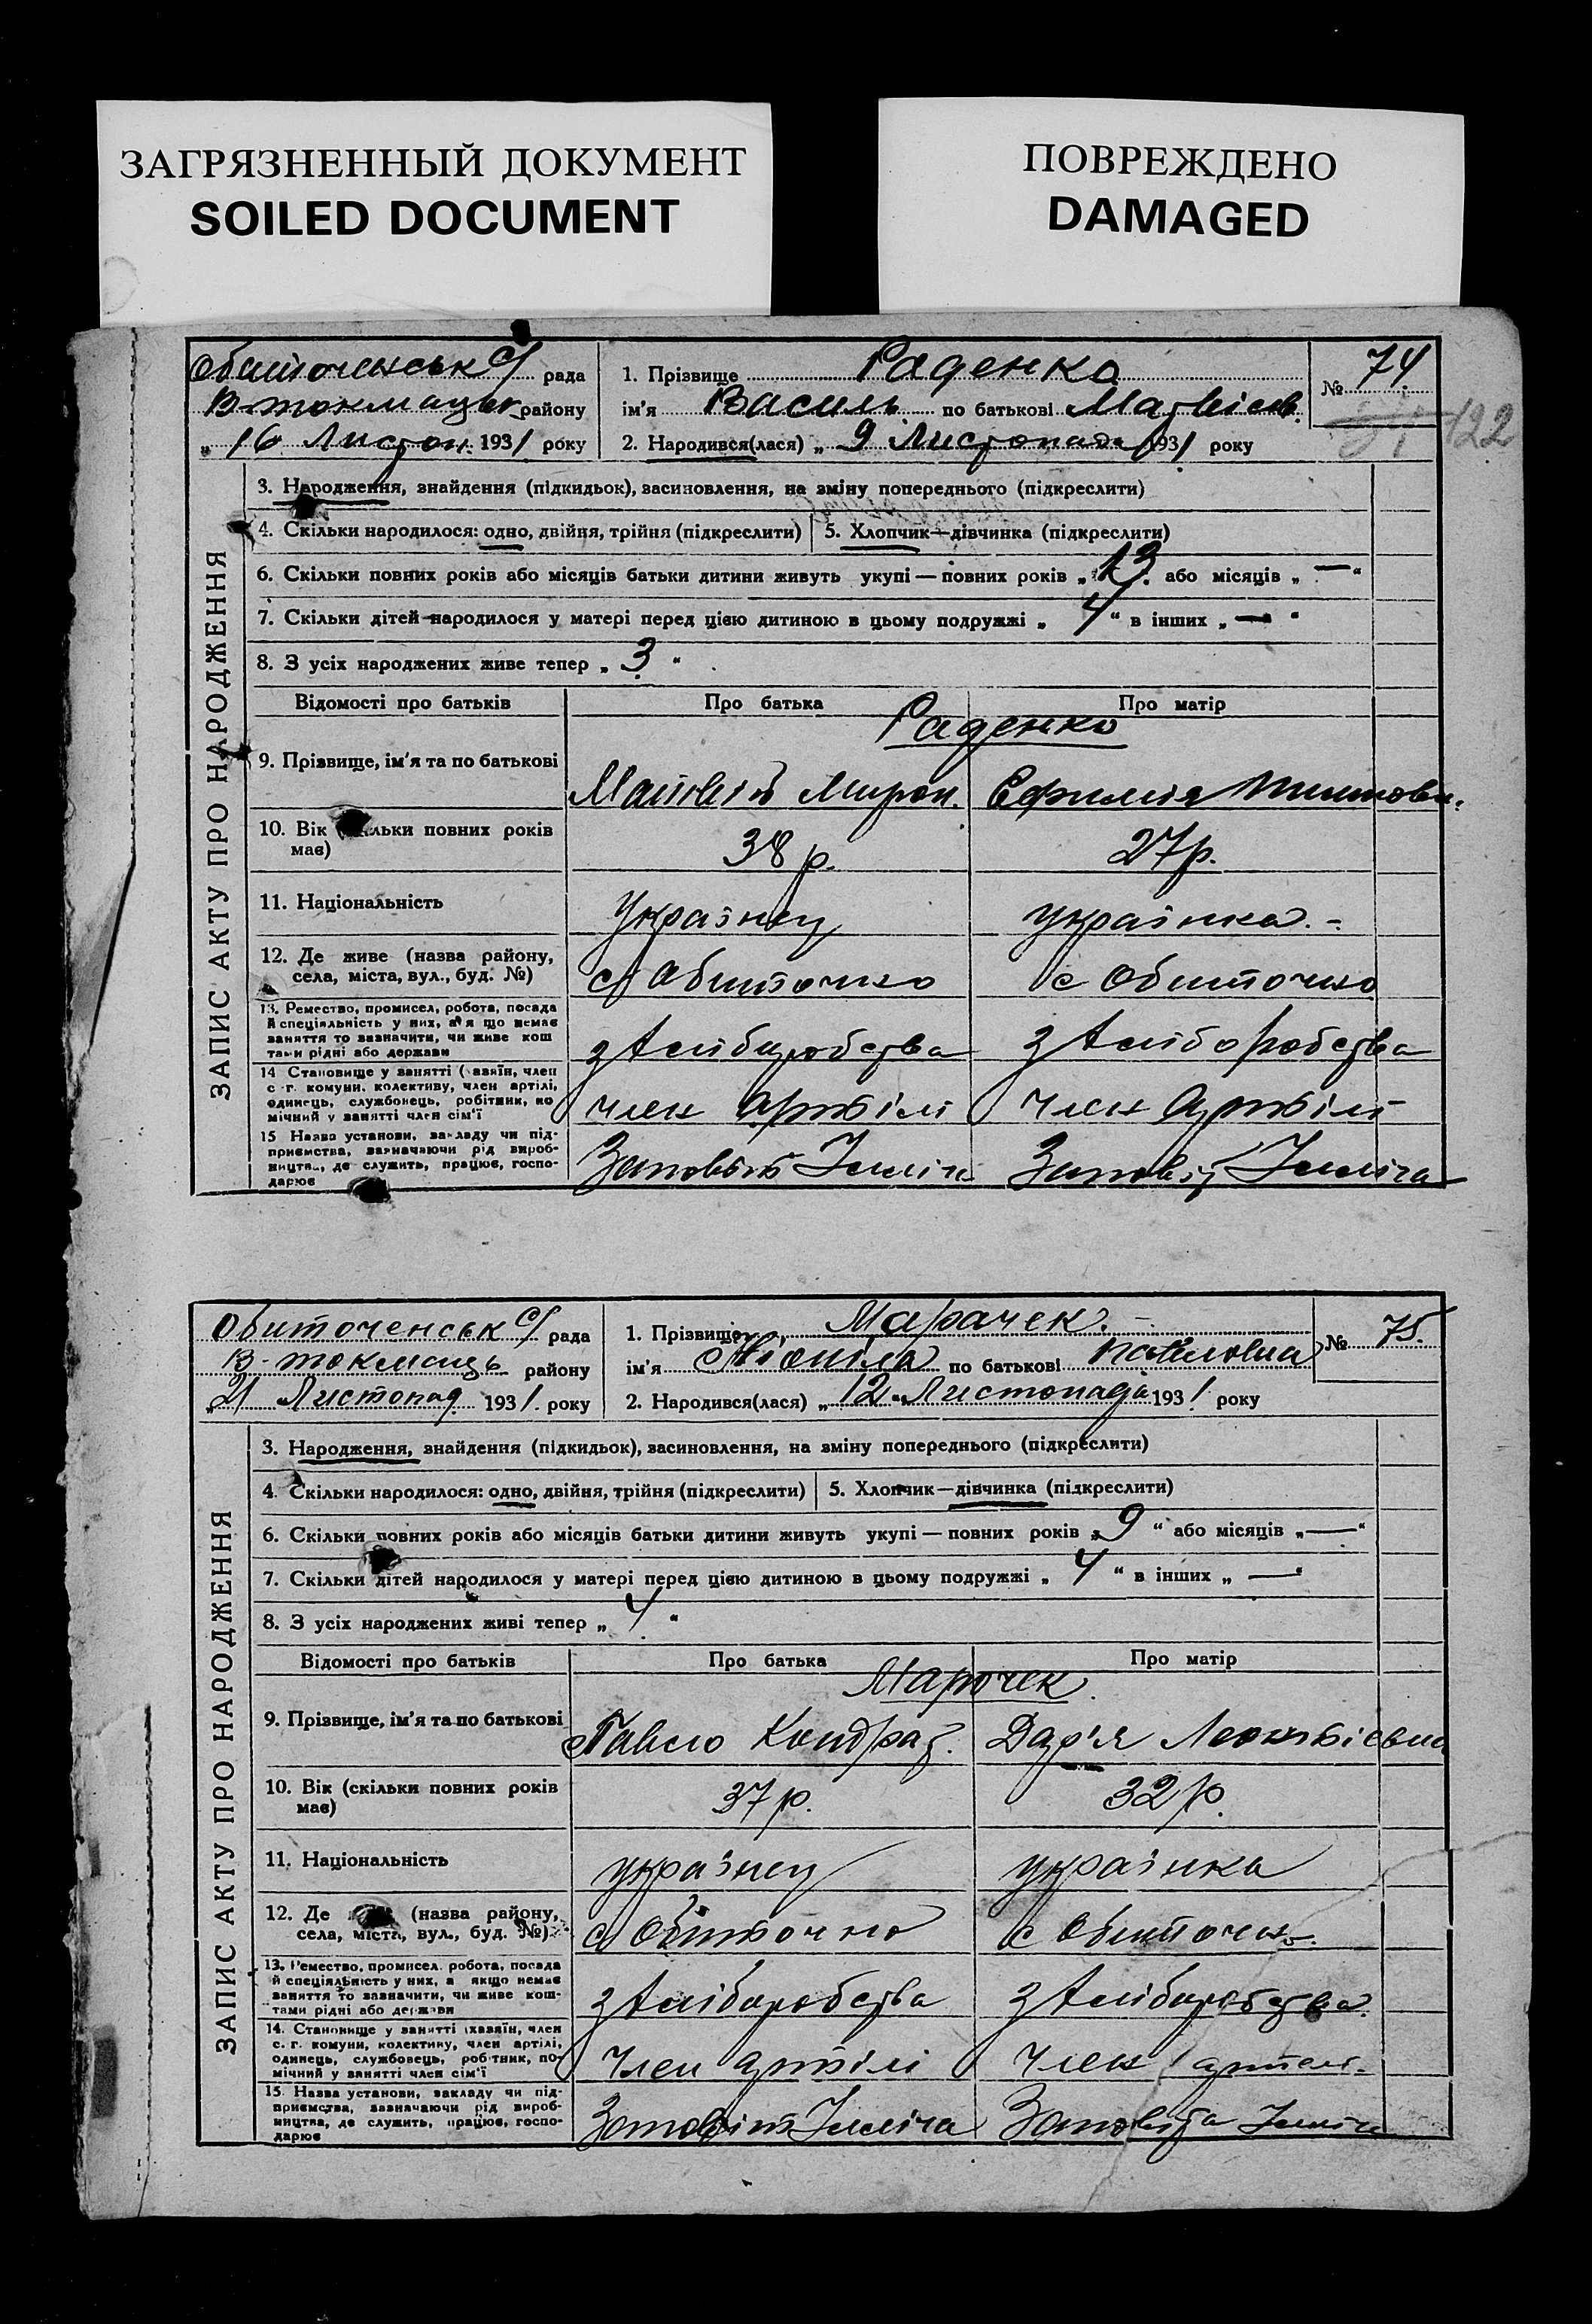 ЗАГРЯЗНЕННЫЙ ДОКУМЕНТ
SOILED DOCUMENT
ПОВРЕЖДЕНО
DAMAGED
Обиточенськ с/ рада
В-токмацьк району
„ 16 Листоп. 1931 року
1. Прізвище Раденко
ім'я Василь по батькові Матвієв.
2. Народився(лася) „ 9 Листопада 1931 року
№ 74
122
ЗАПИС АКТУ ПРО НАРОДЖЕННЯ
3. Народження, знайдення (підкидьок), засиновлення, на зміну попереднього (підкреслити)
4. Скільки народилося: одно, двійня, трійня (підкреслити)
5. Хлопчик—дівчинка (підкреслити)
6. Скільки повних років або місяців батьки дитини живуть укупі — повних років „ 13 . або місяців „ — “
7. Скільки дітей народилося у матері перед цією дитиною в цьому подружжі „ 4 “ в інших „ — “
8. З усіх народжених живе тепер „ 3 “
Відомості про батьків
Про батька
Про матір
Раденко
9. Прізвище, ім'я та по батькові
Матвій Мирон.
Ефимія
10. Вік ( льки повних років
має)
38 р.
27 р.
11. Національність
Українец
українка. -
12. Де живе (назва району,
села, міста, вул., буд. №)
с Обиточно
с Обиточно
13. Ремество, промисел, робота, посада
й спеціяльність у них, а я що немає
заняття то зазначити, чи живе кош
тами рідні або держави
з хлібаробства
з хліборобства
14 Становище у занятті ( азяїн, член
с г. комуни, колективу, член артілі,
одинець, службонець, робітник, по
мічний у занятті член сім'ї
член артілі
член артілі
15 Назва установи, закладу чи під-
приємства, зазначаючи рід вироб-
ництва, де служить, працює, госпо-
дарює
Заповіт Ілліча
Заповіт Ілліча
Обиточенськ с/ рада
В-токмацьк району
„21 Листопад 1931. року
1. Прізвище Марачек. -
ім'я по батькові Павловна
2. Народився(лася) „ 12 „ Листопада 1931 року
№ 75.
ЗАПИС АКТУ ПРО НАРОДЖЕННЯ
3. Народження, знайдення (підкидьок), засиновлення, на зміну попереднього (підкреслити)
4. Скільки народилося: одно, двійня, трійня (підкреслити)
5. Хлопчик—дівчинка (підкреслити)
6. Скільки повних років або місяців батьки дитини живуть укупі — повних років „ 9 “ або місяців „ — “
7. Скільки дітей народилося у матері перед цією дитиною в цьому подружжі „ 4 “ в інших „ — “
8. З усіх народжених живі тепер „ 4 “
Відомості про батьків
Про батька
Про матір
Марочек
9. Прізвище, ім'я та по батькові
Павло Кондрат.
Дар'я Леонтієвна
10. Вік (скільки повних років
має)
37 р.
32 р.
11. Національність
українец
українка
12. Де (назва району,
села, міста, вул., буд. №)
с Обиточно
с Обиточно.
13. Ремество, промисел, робота, посада
й спеціяльність у них, а якщо немає
заняття то зазначити, чи живе кош-
тами рідні або держави
з хлібаробства
з хлібаробства
14. Становище у занятті (хазяїн, член
с. г. комуни, колективу, член артілі,
одинець, службовець, робітник, по-
мічний у занятті член сім'ї
член артілі
член артелі.
15. Назва установи, закладу чи під-
приємства, зазначаючи рід вироб-
ництва, де служить, працює, госпо-
дарює
Заповіт Ілліча
Заповіта Ілліча